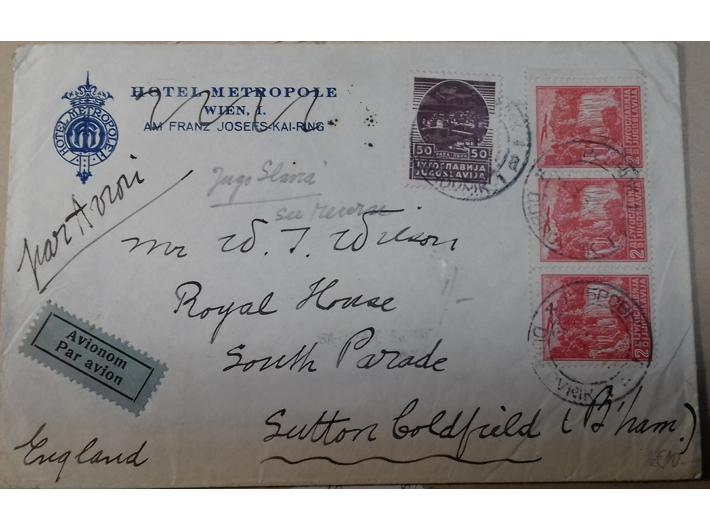 HOTEL METROPOLE
WIEN, I.
AM FRANZ JOSEFS-KAI-RING
HOTEL METROPOLE
50 50
ЈУГОСЛАВИЈА
JUGOSLAVIJA
2
ЈУГОСЛАВИЈА
JUGOSLAVIJA
2
ЈУГОСЛАВИЈА
JUGOSLAVIJA
2
ЈУГОСЛАВИЈА
JUGOSLAVIJA
Jugo Slavia
see reverse
par Avion
Mr W. T. Wilson
Royal House
South Parade
Sutton Coldfield (B'ham.)
England
Avionom
Par avion